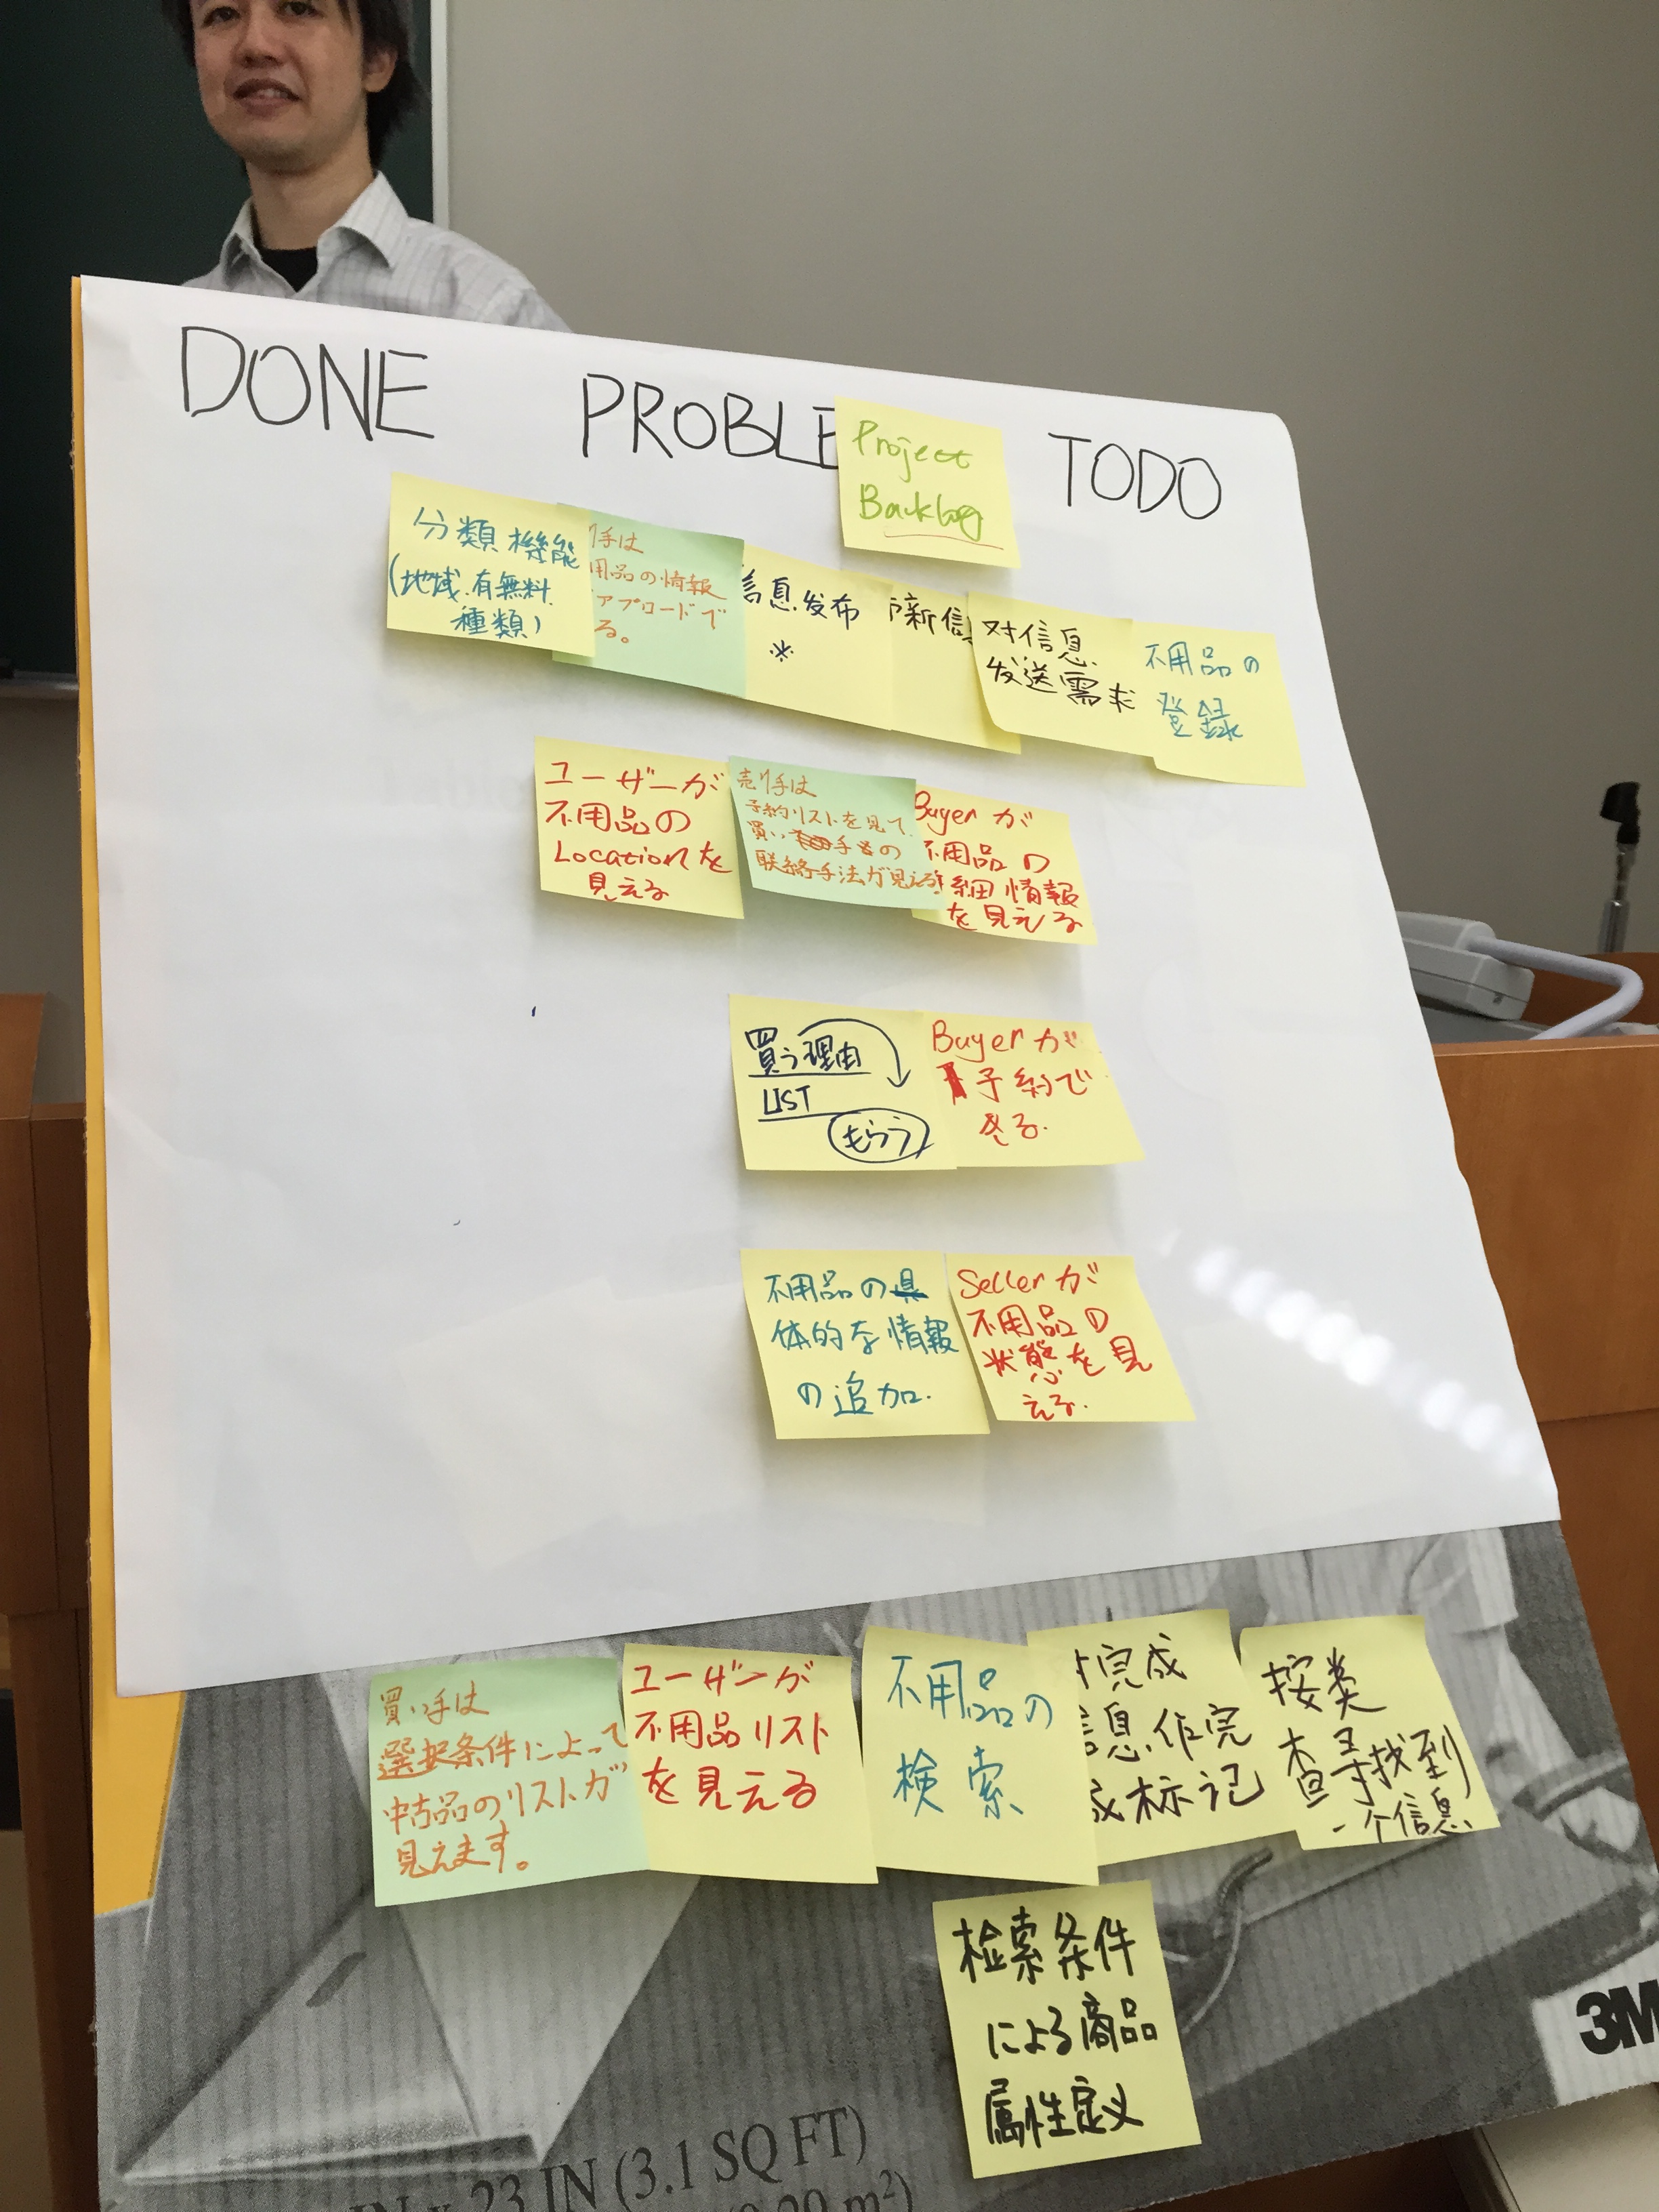 DONE PROBLE TODO
Project
Backlog
分類機能
(地域.有無料.
種類)
手は
用品の情報
アプロードで
る。
信息发布
※
新信
对信息
发送需求
不用品の
登録
ユーザーが
不用品の
Locationを
見える
売り手は
予約リストを見て、
買い手の
联絡手法が見える
Buyerが
不用品の
細情報
を見える
買う理由
LIST
もらう
Buyerが
予約で
きる.
不用品の具
体的な情報
の追加.
Sellerが
不用品の
状態を見
える.
買い手は
選択条件によって
中古品のリストが
見えます。
ユーザーが
不用品リスト
を見える
不用品の
検索
完成
信息作完
成标记
按类
查寻找到
一个信息
检索条件
による商品
属性定义
3M
IN x 23 IN (3.1 SQ FT)
m²)